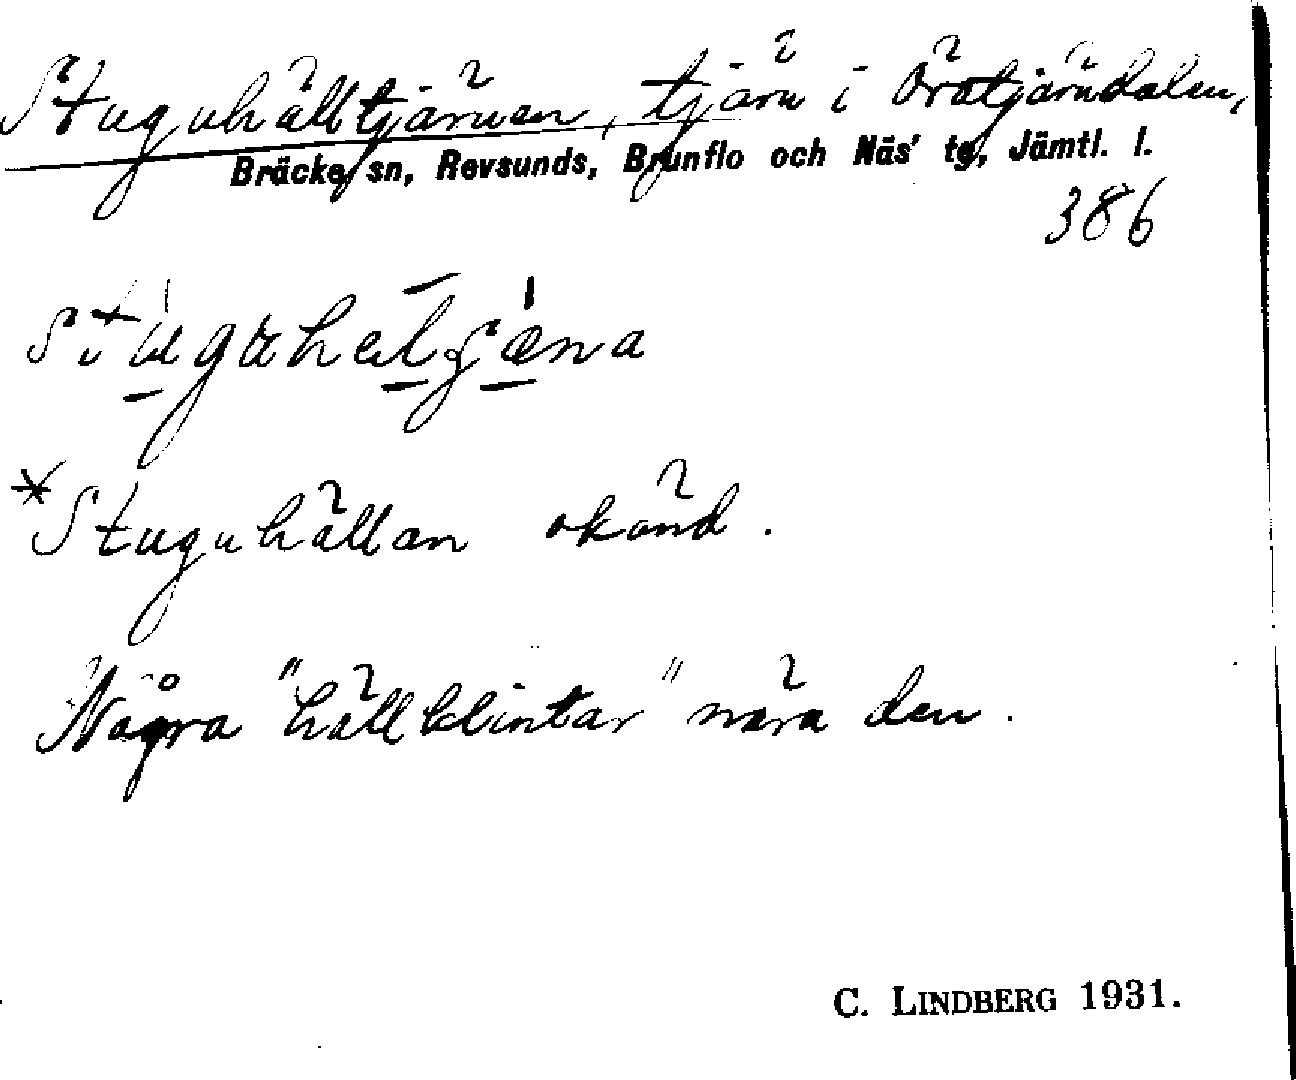 Stuguhälltjärnen, tjärn i Öråtjärndalen,
Bräcke sn, Revsunds, Brunflo och Näs' tg, Jämtl. l.
386
*Stuguhällan okänd.
Några "hällklintar" nära den.
C. LINDBERG 1931.